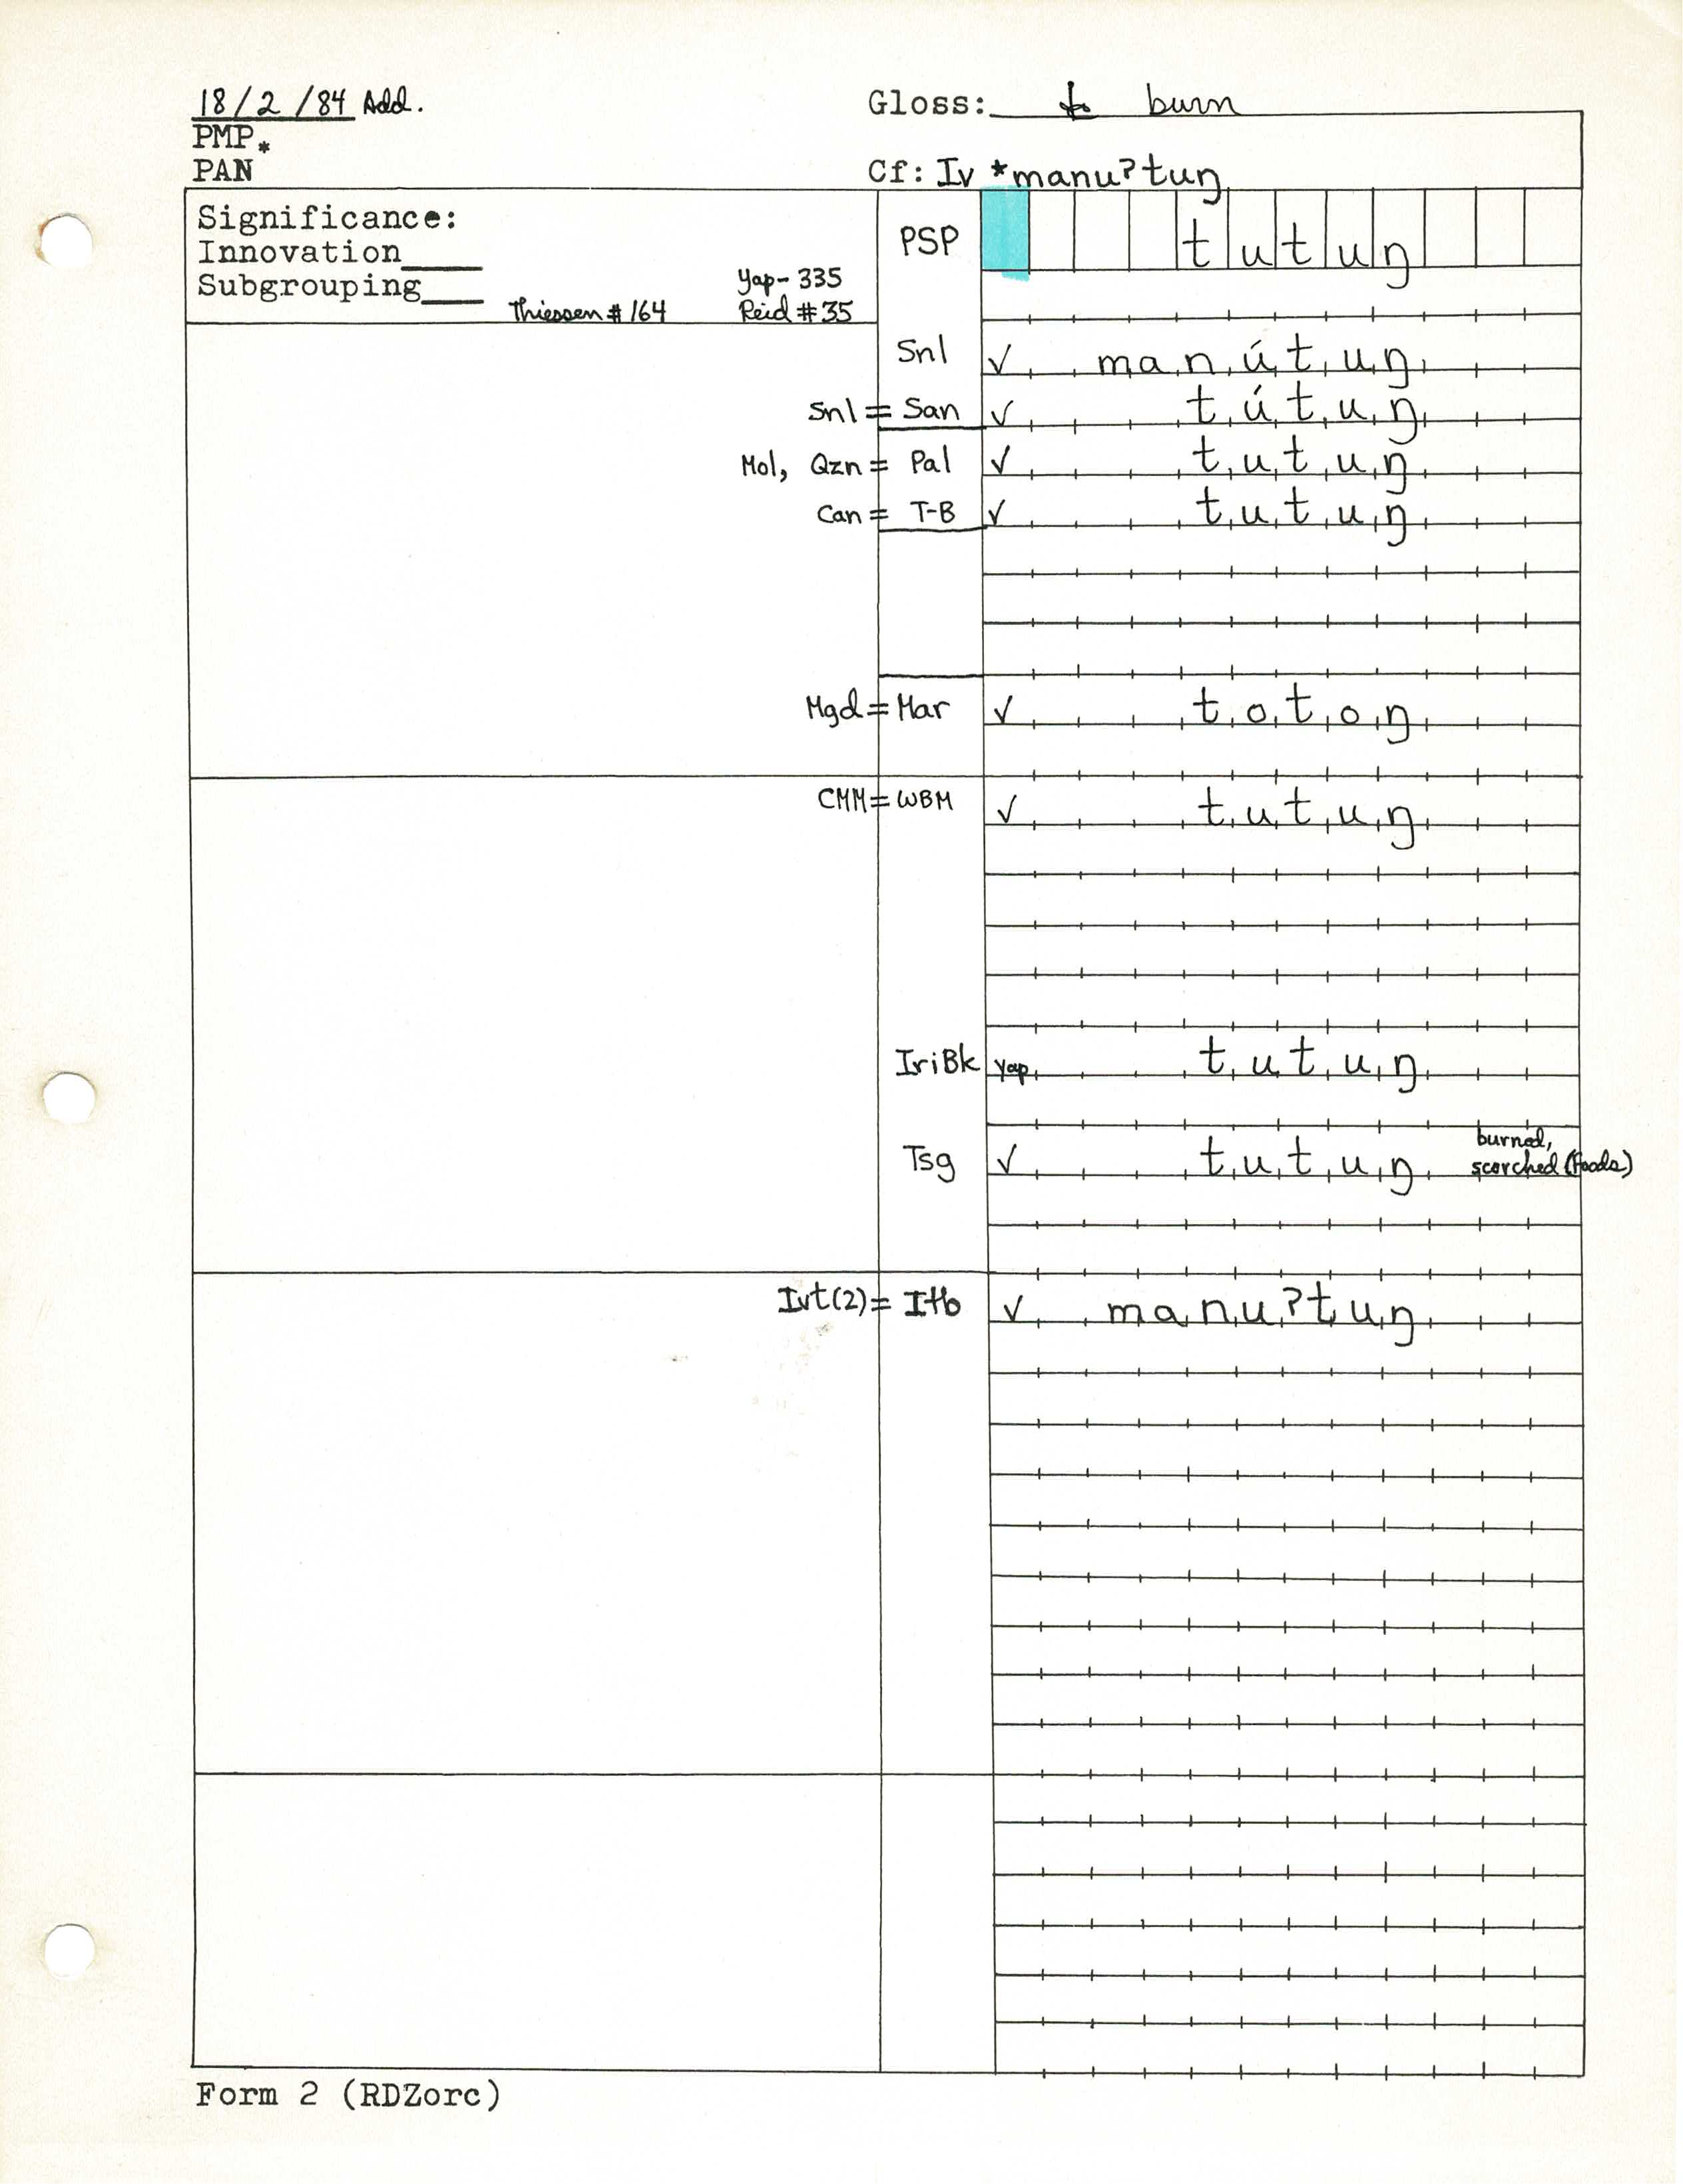 18/2/84 Add.
Gloss: to burn
PMP*
PAN
Cf: Iv *manuʔtuŋ
Significance:
Innovation____
Subgrouping___
Yap- 335
Thiessen # 164 Reid # 35
PSP tutuŋ
Snl ✓ manútuŋ
Snl = San ✓ tútuŋ
Mol, Qzn = Pal ✓ tutuŋ
Can = T-B ✓ tutuŋ
Mgd = Mar ✓ totoŋ
CMM = WBM ✓ tutuŋ
IriBk yap tutuŋ
Tsg ✓ tutuŋ burned,
scorched (foods)
Ivt(2) = Itb ✓ manuʔtuŋ
Form 2 (RDZorc)